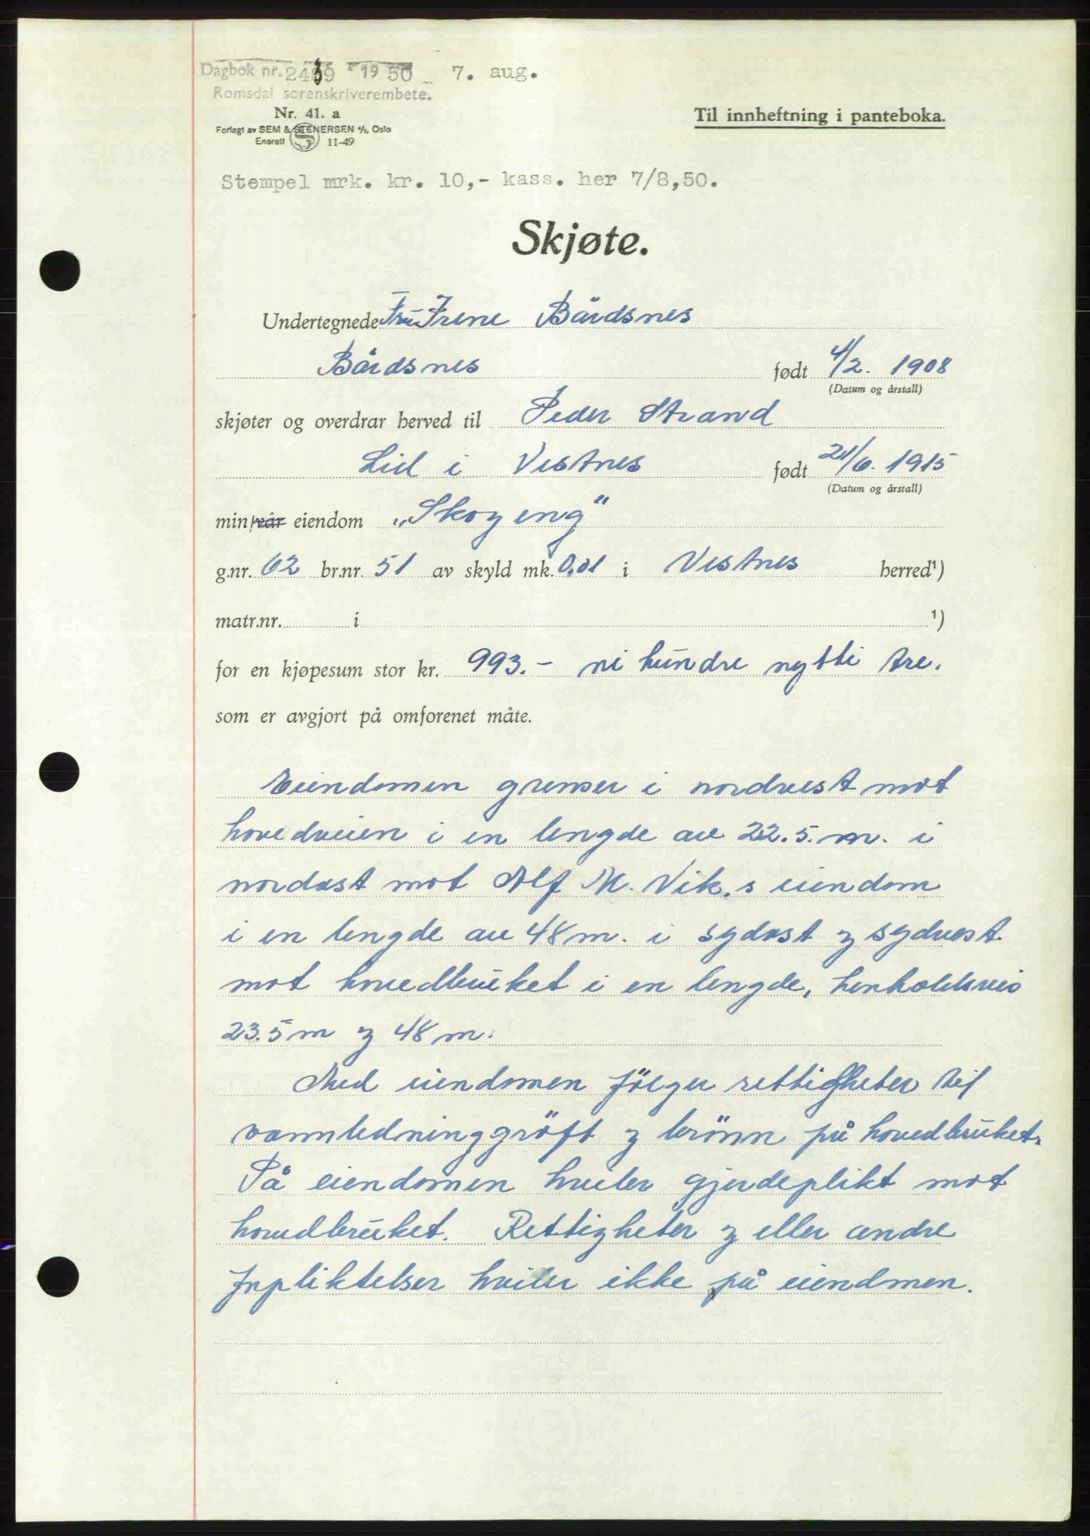 Dagbok nr. 2439 1950 7. aug.
Romsdal sorenskriverembete.
Nr. 41. a
Til innheftning i panteboka.
Forlagt av SEM & STENERSEN A/S, Oslo
Enerett 11-49
Stempel mrk. kr. 10,- kass. her 7/8,50.
Skjøte.
Undertegnede Fru Irene Bårdsnes
Bårdsnes født 4/2. 1908
(Datum og årstall)
skjøter og overdrar herved til Peder Strand
Lid i Vestnes født 21/6. 1915
(Datum og årstall)
min/vår eiendom „Skogeng"
g.nr. 62 br.nr. 51 av skyld mk. 0,01 i Vestnes herred¹)
matr.nr. i ¹)
for en kjøpesum stor kr. 993.- ni hundre nytti tre.
som er avgjort på omforenet måte.
Eiendomen grenser i nordvest mot
hovedveien i en lengde av 22.5. m. i
nordøst mot Alf M. Vik.s eiendom
i en lengde av 48 m. i sydøst og sydvest
mot hovedbruket i en lengde, henholdsvis
23.5 m og 48 m.
Med eiendomen følger rettigheter til
vannledninggrøft og brønn på hovedbruket.
På eiendomen hviler gjerdeplikt mot
hovedbruket. Rettigheter og eller andre
forpliktelser hviler ikke på eiendmen.